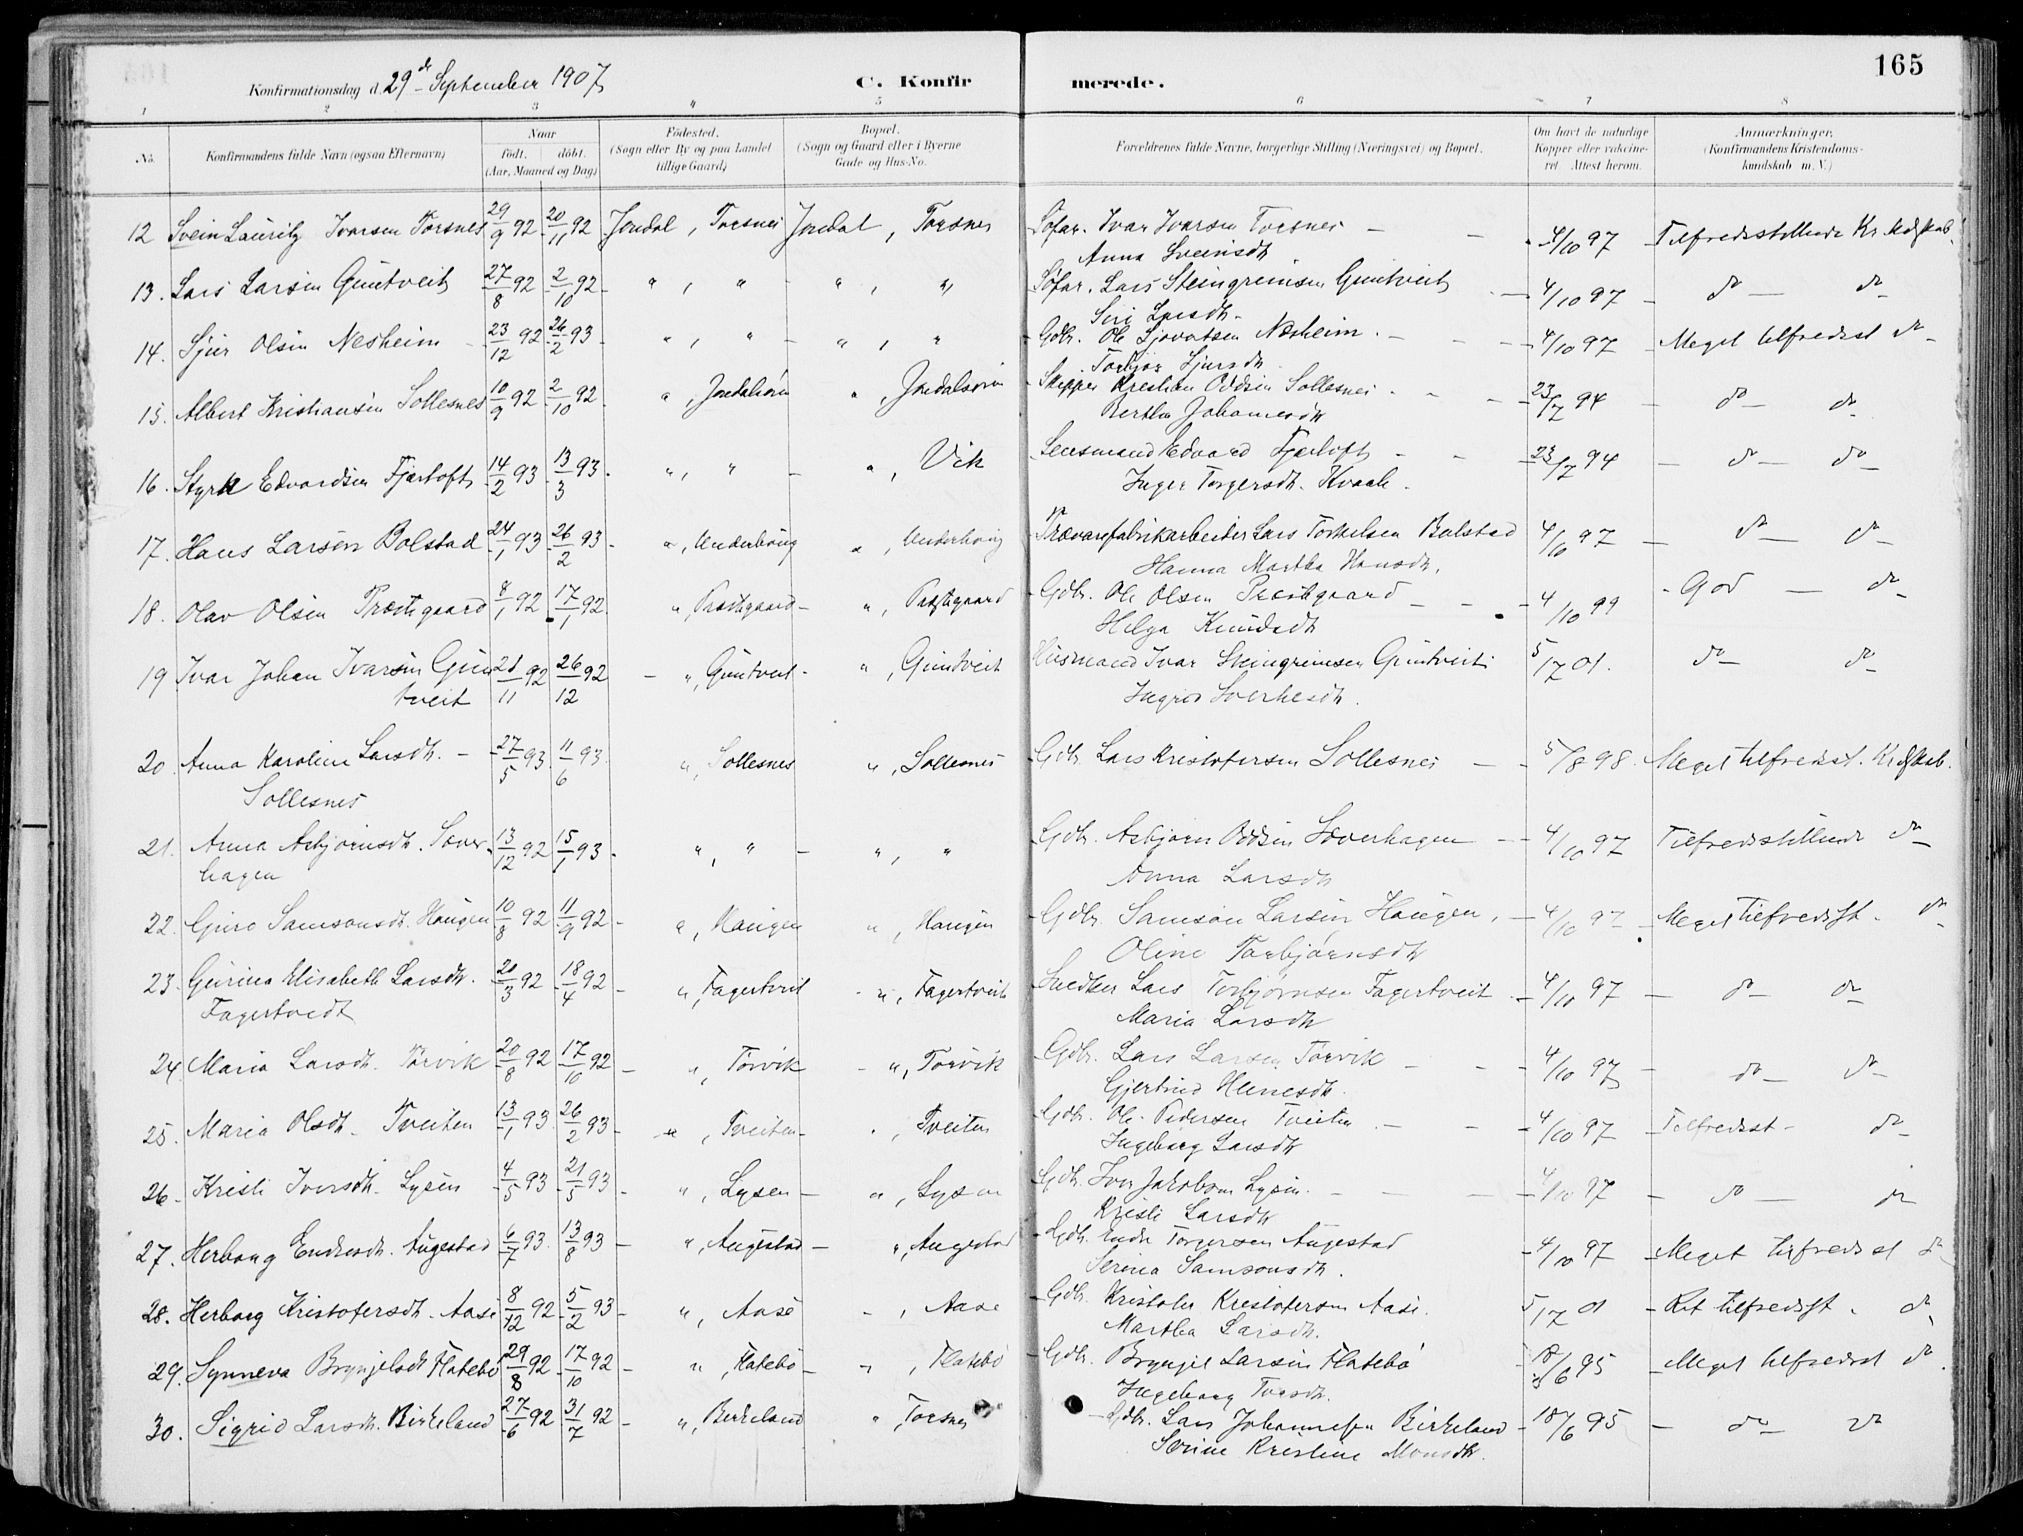 165
Konfirmationsdag d. 29de September 1907
C. Konfirmerede.
1 2 3 4 5 6 7 8
No. Konfirmandens fulde Navn (ogsaa Efternavn) Naar født. døbt. (Aar, Maaned og Dag) Fødested. (Sogn eller By og paa Landet tillige Gaard) Bopæl. (Sogn og Gaard eller i Byerne Gade og Hus-No. Forældrenes fulde Navne, borgerlige Stilling (Næringsvei) og Bopæl. Om havt de naturlige Kopper eller vakcineret. Attest herom. Anmærkninger. (Konfirmandens Kristendomskundskab m. V.)
12 Svein Lauritz Ivarsen Torsnes 29/9 92 20/11 92 Jondal, Torsnes Jondal, Torsnes Søfar. Ivar Ivarsen Torsnes 4/10 97 Tilfredsstillende Kr.kdskab.
Anna Sveinsdtr
13. Lars Larsen Guntveit 27/8 92 2/10 92 " , " " , " Søfar. Lars Steingrimsen Guntveit 4/10 97 do do
Siri Larsdtr
14. Sjur Olsen Nesheim 23/12 92 26/2 93 " , " " , " Gdbr. Ole Sjovatsen Nesheim 4/10 97 Meget tilfredsst do
Torbjør Sjursdtr
15. Albert Kristiansen Sollesnes 10/9 92 2/10 92 " , Jondalsøren " , Jondalsøren Skipper Kristian Oddsen Sollesnes 23/7 94 do do
Bertha Johannesdtr
16. Styrk Edvardsen Fjærtoft 14/2 93 13/3 93 " , " " , Vik Lensmand Edvard Fjærtoft 23/7 94 do do
Inger Torgersdtr. Kvaale.
17. Hans Larsen Bolstad 24/1 93 26/2 93 " , Underhaug " , Underhaug Trævarefabrikarbeider Lars Torkelsen Bolstad 4/10 97 do do
Hanna Martha Hansdtr.
18. Olav Olsen Præstgaard 8/1 92 17/1 92 " , Præstgaard " , Præstgaard Gdbr. Ole Olsen Præstgaard 4/10 99 God do
Helga Knudsdtr
19 Ivar Johan Ivarsen Gun 21/11 92 26/12 92 " , Guntveit " , Guntveit Husmand Ivar Steingrimsen Guntveit 5/7 01. do do
tveit Ingrid Sverkesdtr.
20. Anna Karoline Larsdtr. 27/5 93 11/6 93 " , Sollesnes " , Sollesnes Gdbr. Lars Kristofersen Sollesnes 5/8 98. Meget tilfredsst. Kr.dskab.
Sollesnes
21. Anna Asbjørnsdtr. Sæver 13/12 92 15/1 93 " , " " , " Gdbr. Asbjørn Oddsen Sæverhagen 4/10 97 Tilfredsstillende do
hagen Anna Larsdtr
22. Guro Samsonsdtr. Haugen 10/8 92 11/9 92 " , Haugen " , Haugen Gdbr. Samson Larsen Haugen, 4/10 97 Meget tilfredsst. do
Oline Torbjørnsdtr
23. Gurina Elisabeth Larsdtr. 20/3 92 18/4 92 " , Fagertveit " , Fagertveit Snedker Lars Torbjørnsen Fagertveit 4/10 97 do do
Fagertvedt Maria Larsdtr
24. Maria Larsdtr. Torvik 20/8 92 17/10 92 " , Torvik " , Torvik Gdbr. Lars Larsen Torvik 4/10 97 do do
Gjertrud
25. Maria Olsdtr. Tveiten 13/1 93 26/2 93 " , Tveiten " , Tveiten Gdbr. Ole Pedersen Tveiten 4/10 97 Tilfredsst do
Ingeborg Larsdtr
26. Kristi Iversdtr. Lysen 4/5 93 21/5 93 " , Lysen " , Lysen Gdbr. Iver Jakobsen Lysen. 4/10 97 do do
Kristi Larsdtr
27. Herborg Endresdtr. Augestad 6/7 93. 13/8 93 " , Augestad " , Augestad Gdbr. Endre Torgersen Augestad 4/10 97 Meget tilfredsst do
Serina Samsonsdtr.
28. Herborg Kristofersdtr. Aase 8/12 92 5/2 93 " , Aase " , Aase Gdbr. Kristofer Kristofersen Aase. 5/7 01 Ret tilfredsst. do
Martha Larsdtr.
29. Synneva Brynjelsdtr Flatebø 29/8 92 17/10 92 " , Flatebø " , Flatebø Gdbr. Brynjel Larsen Flatebø 18/6 95 Meget tilfredsst do
Ingeborg
30. Sigrid Larsdtr. Birkeland 27/6 92 31/7 92 " , Birkeland " , Torsnes Gdbr. Lars Johannesen Birkeland 18/6 95 do do
Serine Kristine Monsdtr.